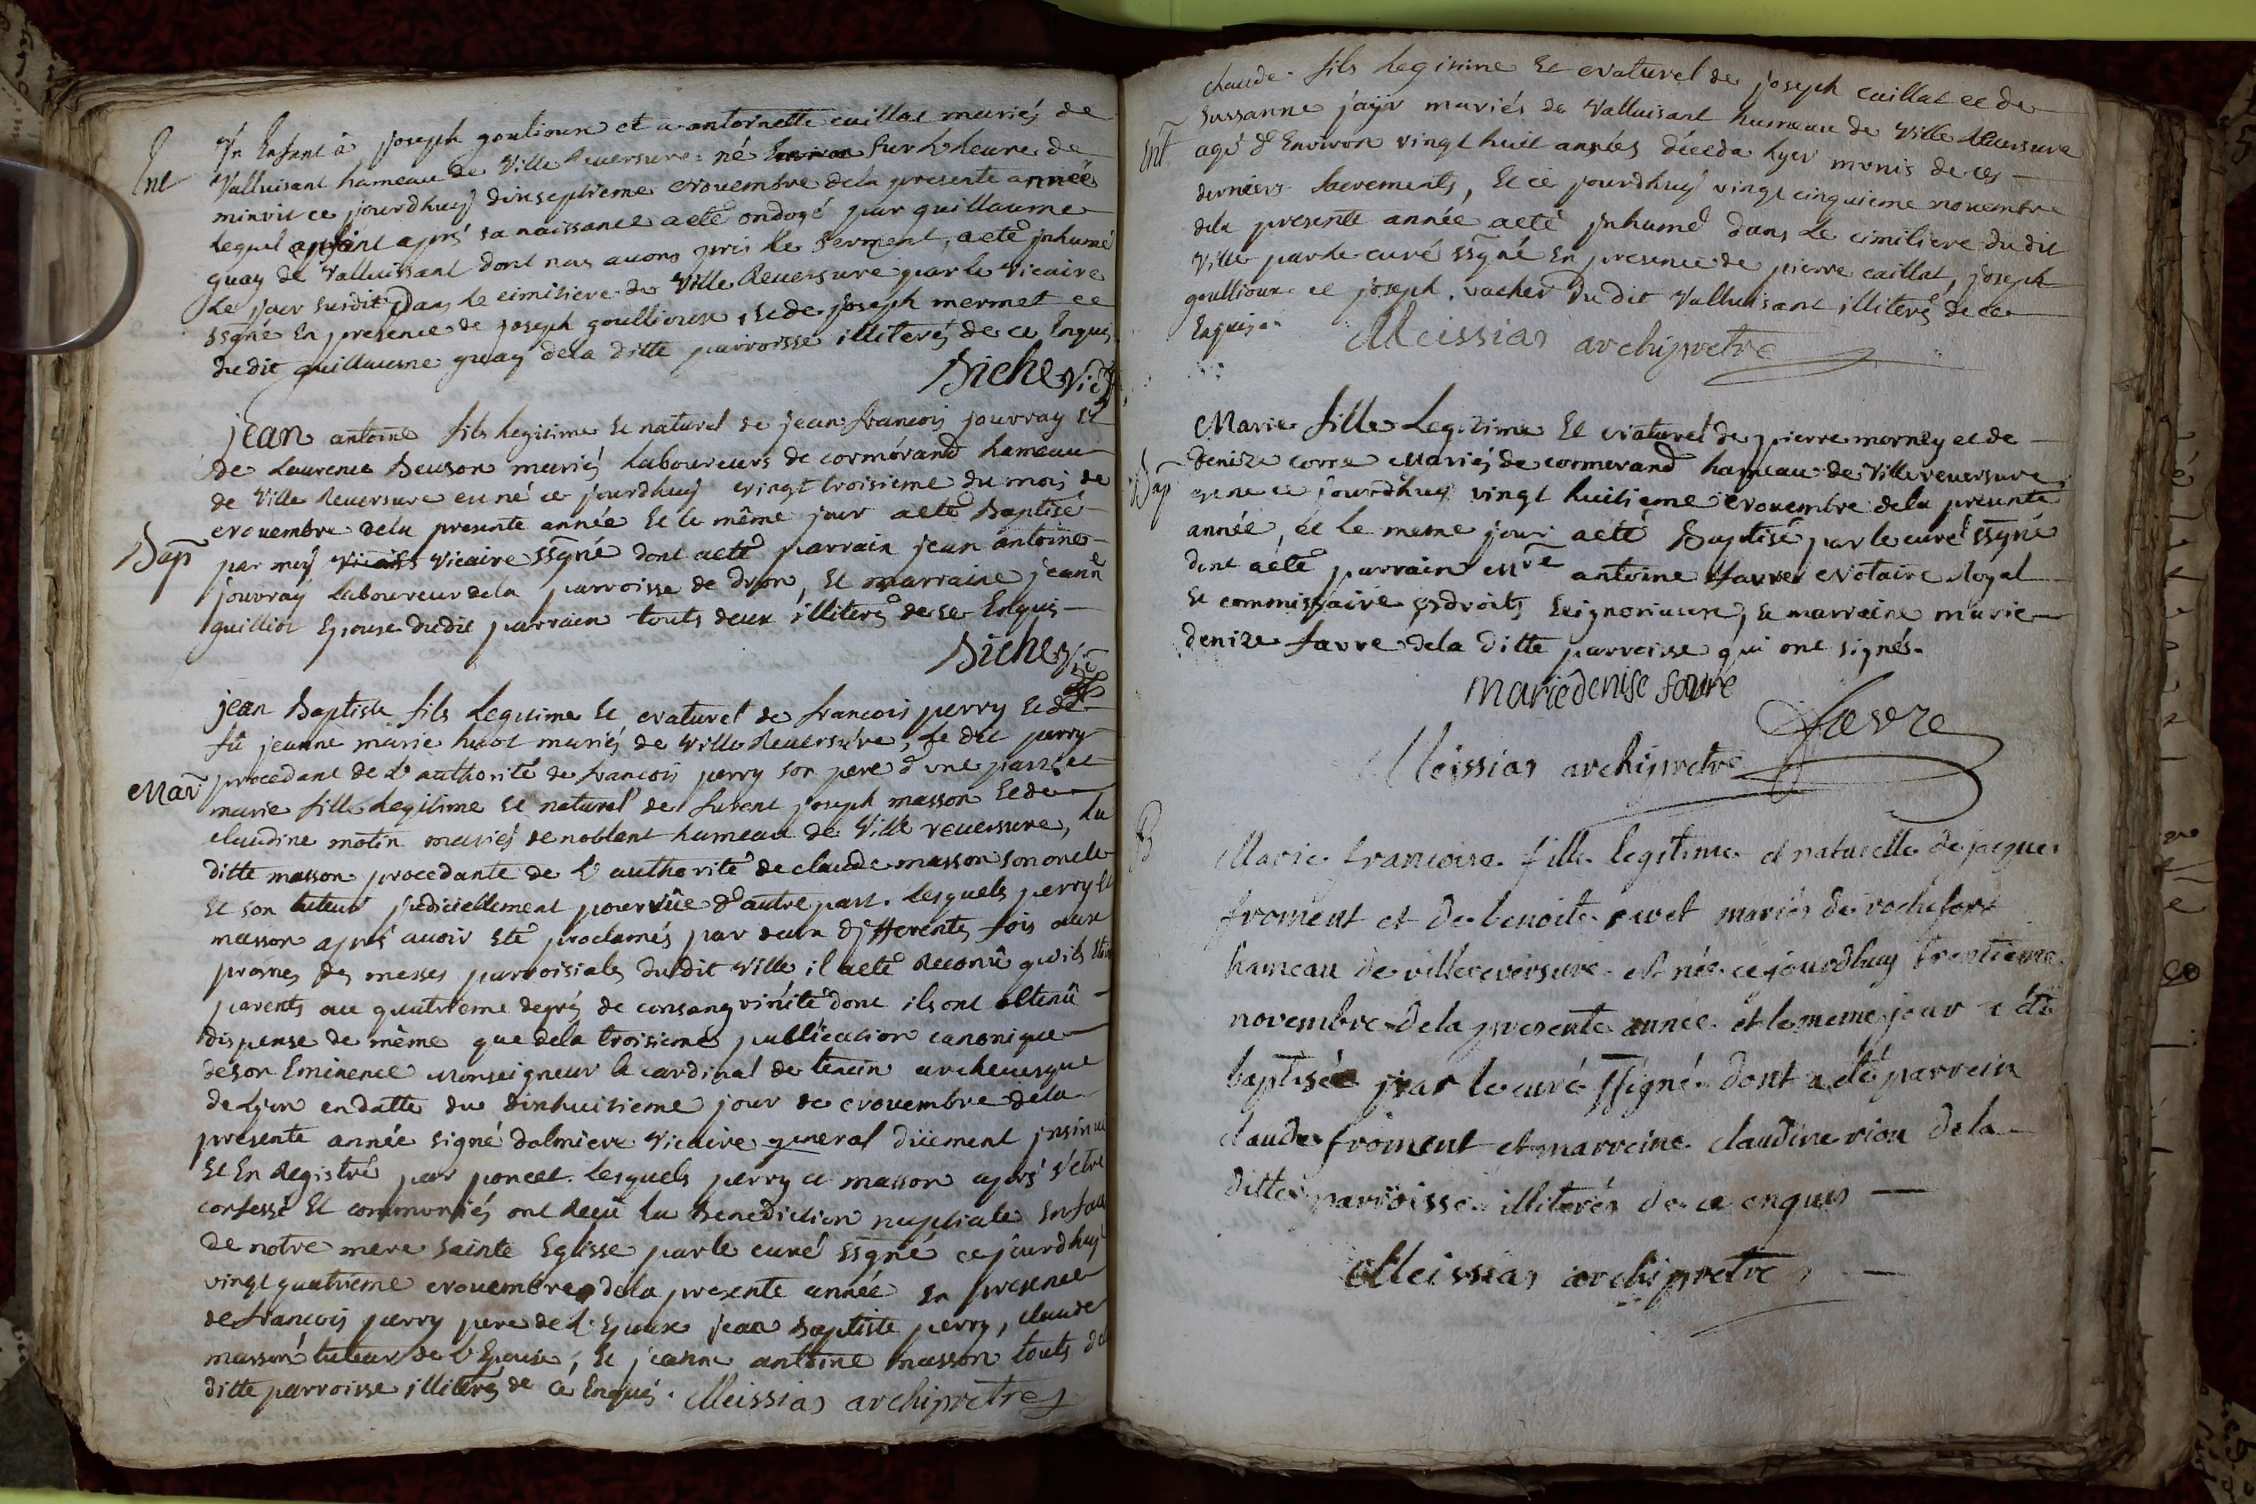 Ent
Un Enfant à joseph goulioux et a antoinette caillat mariés de
Valluisant hameau de Ville Reversure né sur L'heure de
minuit ce jourdhuy dixseptieme novembre dela presente année
Lequel apprés sa naissance aeté ondoyé par guillaume
guay de Valluisant dont nous avons pris le serment, aeté jnhumé
Le jour susdit Dans le cimitiere de Ville Reversure par le Vicaire
ssgné En presence de joseph goullioux, se de joseph mermet et
du dit guillaume guay dela ditte parroisse illiterés de ce Enquis
Diche Vic
jean antoine fils legitime Et naturel de jean francois jouvray Et
de Laurence Beuson mariés Laboureurs de cormorand hameau
de Ville Reversure est né ce jourdhuy vingt troisieme du mois de
Bap
novembre dela presente année Et le même jour aeté Baptisé
par moy Vicaire ssgné dont aeté parrain jean antoine
jouvray Laboureur dela parroisse de drom, Et marraine jeanne
guilliot Epouse dudit parrain touts deux illiterés de se Enquis
Diche Vic
jean Baptiste fils Legitime Et naturel de francois perry Et de
fû jeanne marie huot mariés de Ville Reversure, Le dit perry
Mar
procedant de L'authorité de francois perry son pere d'une part et
marie fille Legitime Et naturel de furent joseph masson Et de
claudine motin mariés de noblent hameau de Ville reversure, La
ditte masson procedante de L'authorité de claude masson son oncle
Et son tuteur judiciellement pourvüe d'autre part. Lesquels perry Et
masson aprés avoir Eté proclamés par deux differentes fois aux
prônes des messes parroisiales dudit Ville il aeté Reconû qu'ils
parents au quatrieme degré de consanguinité dont ils ont obtenû
dispense de même que dela troisieme publication canonique
de son Eminence Monseigneur le cardinal de tencin archevesque
de Lyon en datte du dixhuitieme jour de novembre dela
presente année signé dalmiere Vicaire general düement jnsinué
Et En Registré par poncet. Lesquels perry et masson aprés s'etre
confessé Et communiés ont Reçû la Benediction nuptiale En face
de notre mere sainte Eglisse par le curé ssgné ce jourdhuy
vingt quatrieme novembre dela presente année En presence
de francois perry pere de L'Epoux jean Baptiste perry, claude
masson tuteur de l'Epouse, Et jeanne antoine masson touts de
ditte parroisse illiterés de ce Enquis. Meissias archiprêtre
claude fils Legitime Et naturel de joseph caillat et de
Sussanne jayr mariés de Valluisant hameau de Ville Reversure
Ent
agé d'Environ vingt huit années déceda hyer munis de ces
derniers sacrements, Et ce jourdhuy vingt cinquieme novembre
dela presente année aeté jnhumé dans Le cimitiere du dit
Ville par le curé ssgné En presence de pierre caillat, joseph
goullioux et joseph vacher du dit Valluisant illiteré de ce
Enquis.
Meissias archipretre
Marie fille Legitime Et naturel de pierre morney et de
denize corra Mariés de cormorand hameau de Ville reversure
Bap
est ne ce jourdhuy vingt huitieme novembre dela presente
année, et Le meme jour aeté Baptisé par le curé ssgné
dont aeté parrain Mre antoine favre Notaire Royal
Et commissaire Es droits Seignoriaux, Et marraine marie
denize favre dela ditte parroisse qui ont signés.
marie denise favre
Favre
Meissias archipretre
B
Marie francoise fille legitime et naturelle de jacques
froment et de benoite ravet mariés de rochefort
hameau de villereversure est née ce jourdhuy trentieme
novembre dela presente année et le meme jour a été
baptisée par le curé ssigné dont a été parrein
claude froment et marreine claudine riou dela
ditte parroisse illiterés de ce enquis
Meissias archipretre